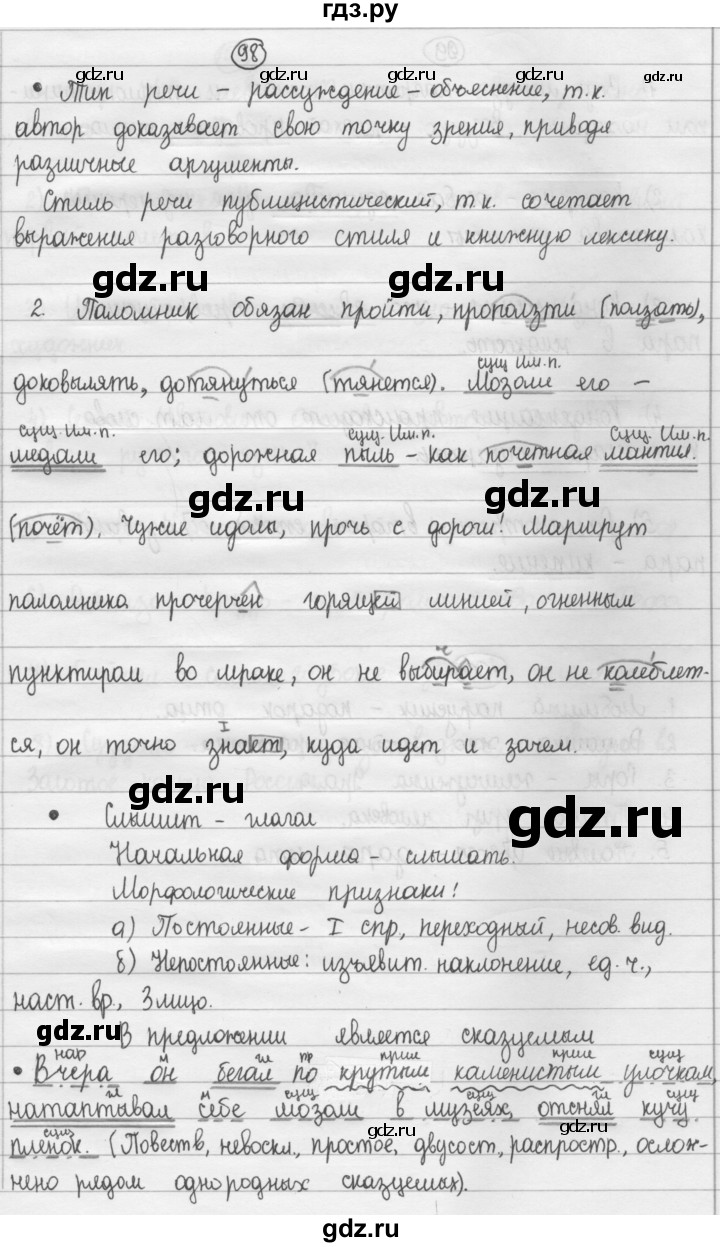 гдз.ру
98
• Тип речи – рассуждение – объяснение, т.к.
автор доказывает свою точку зрения, приводя
различные аргументы.
Стиль речи публицистический, т.к. сочетает
выражения разговорного стиля и книжную лексику.
2. Паломник обязан пройти, проползти (ползать),
доковылять, дотянуться (тянется). Мозоли его –
сущ Им.п.
сущ. Им.п.
сущ. Им.п.
Сущ. Им.п.
медали его; дорожная пыль – как почетная мантия
(почёт). Чужие идолы, прочь с дороги! Маршрут
паломника прочерчен горящей линией, огненным
пунктиром во мраке, он не выбирает, он не колеблет-
I
ся, он точно знает, куда идет и зачем.
• Слышит – глагол
Начальная форма – слышать.
Морфологические признаки:
а) Постоянные – I спр, переходный, несов. вид.
б) Непостоянные: изъявит. наклонение, ед. ч.,
наст. вр., 3 лицо.
В предложении является сказуемым
нар м гл пр прил прил сущ
• Вчера он бегал по крутым каменистым улочкам,
гл м сущ сущ гл сущ
натаптывал себе мозоли в музеях, отснял кучу
сущ
пленок. (Повеств, невоскл, простое, двусост, распростр., ослож-
нено рядом однородных сказуемых).
gdz.ru